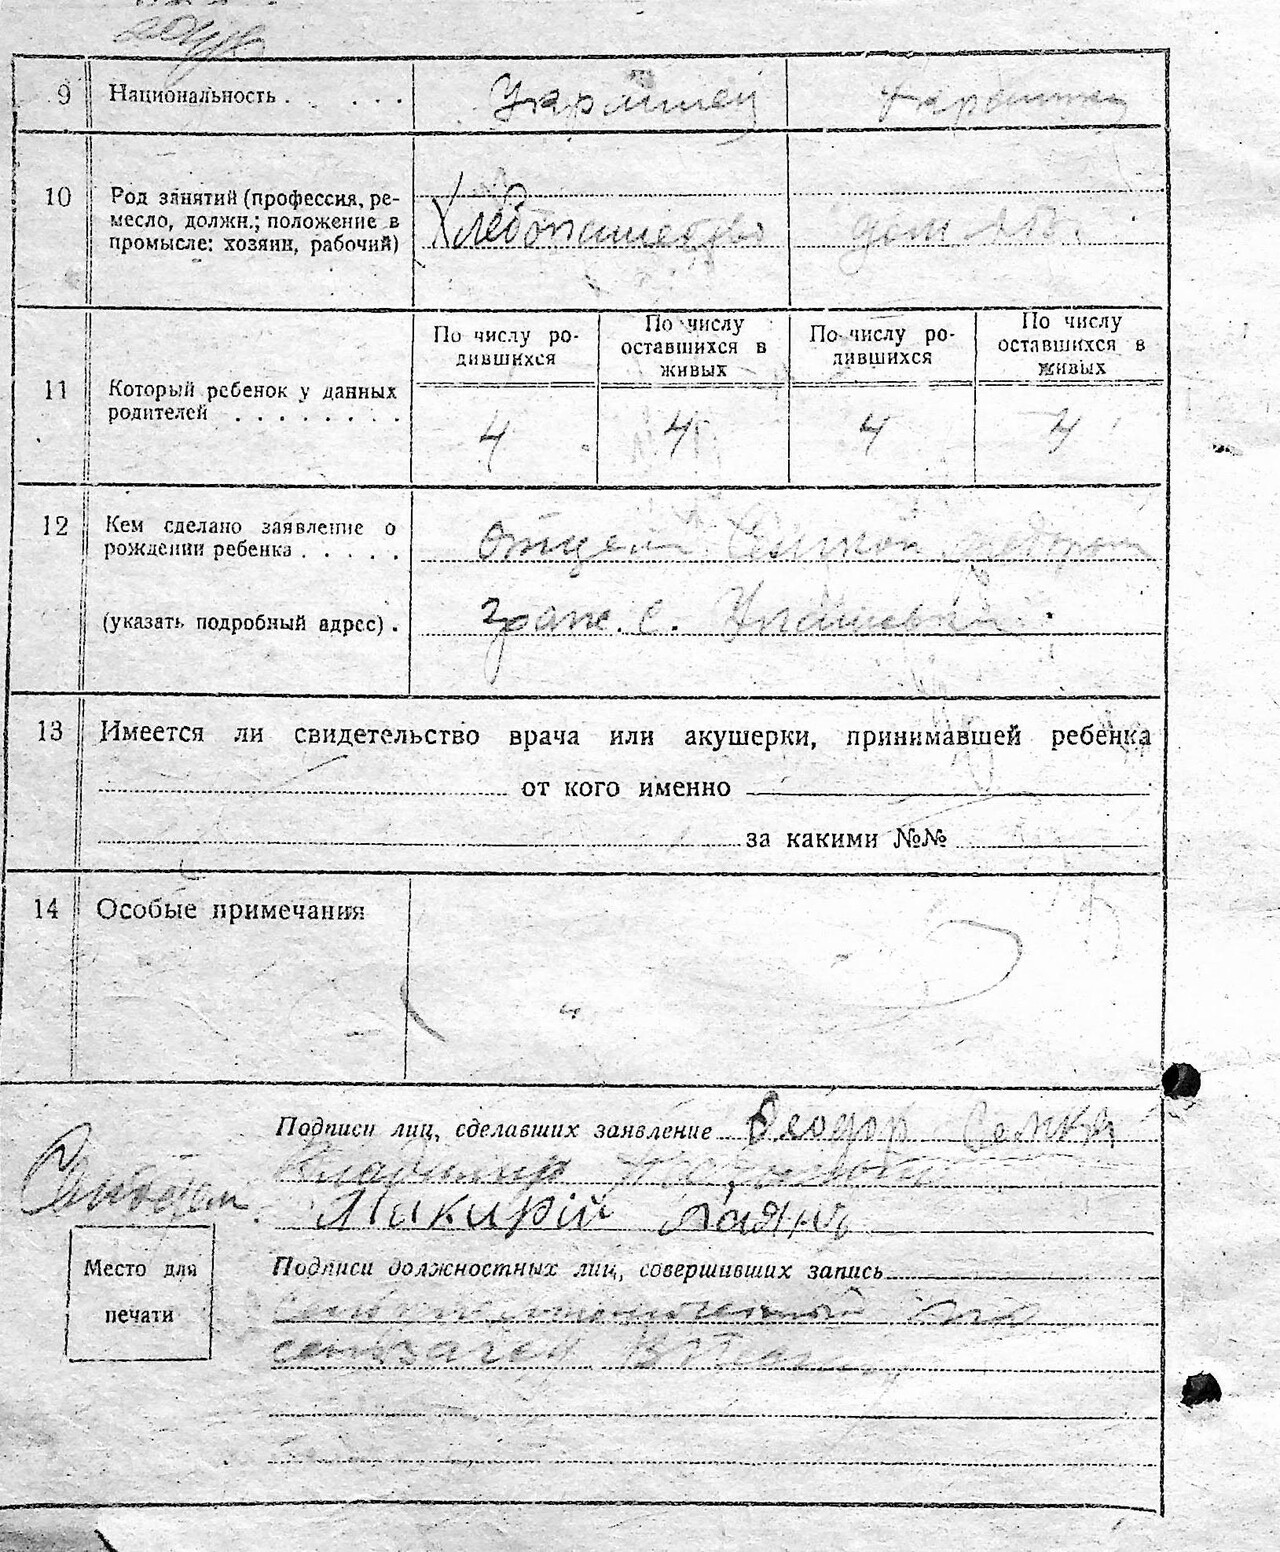 9 Национальность . . . . . Украинец Украинка
10 Род занятий (профессия, ре-
месло, должн.; положение в
промысле: хозяин, рабочий) Хлебопашество дом. раб.
По числу ро-
дившихся
По числу
оставшихся в
живых
По числу ро-
дившихся
По числу
оставшихся в
живых
11 Который ребенок у данных
родителей . . . . . . . .
4 4 4 4
12 Кем сделано заявление о
рождении ребенка . . . . . Отцем
(указать подробный адрес) . граж. с.
13 Имеется ли свидетельство врача или акушерки, принимавшей ребенка
от кого именно
за какими №№
14 Особые примечания
Подписи лиц, сделавших заявление Феодор Семка
Владимир
Макирій
Место для
печати
Подписи должностных лиц, совершивших запись